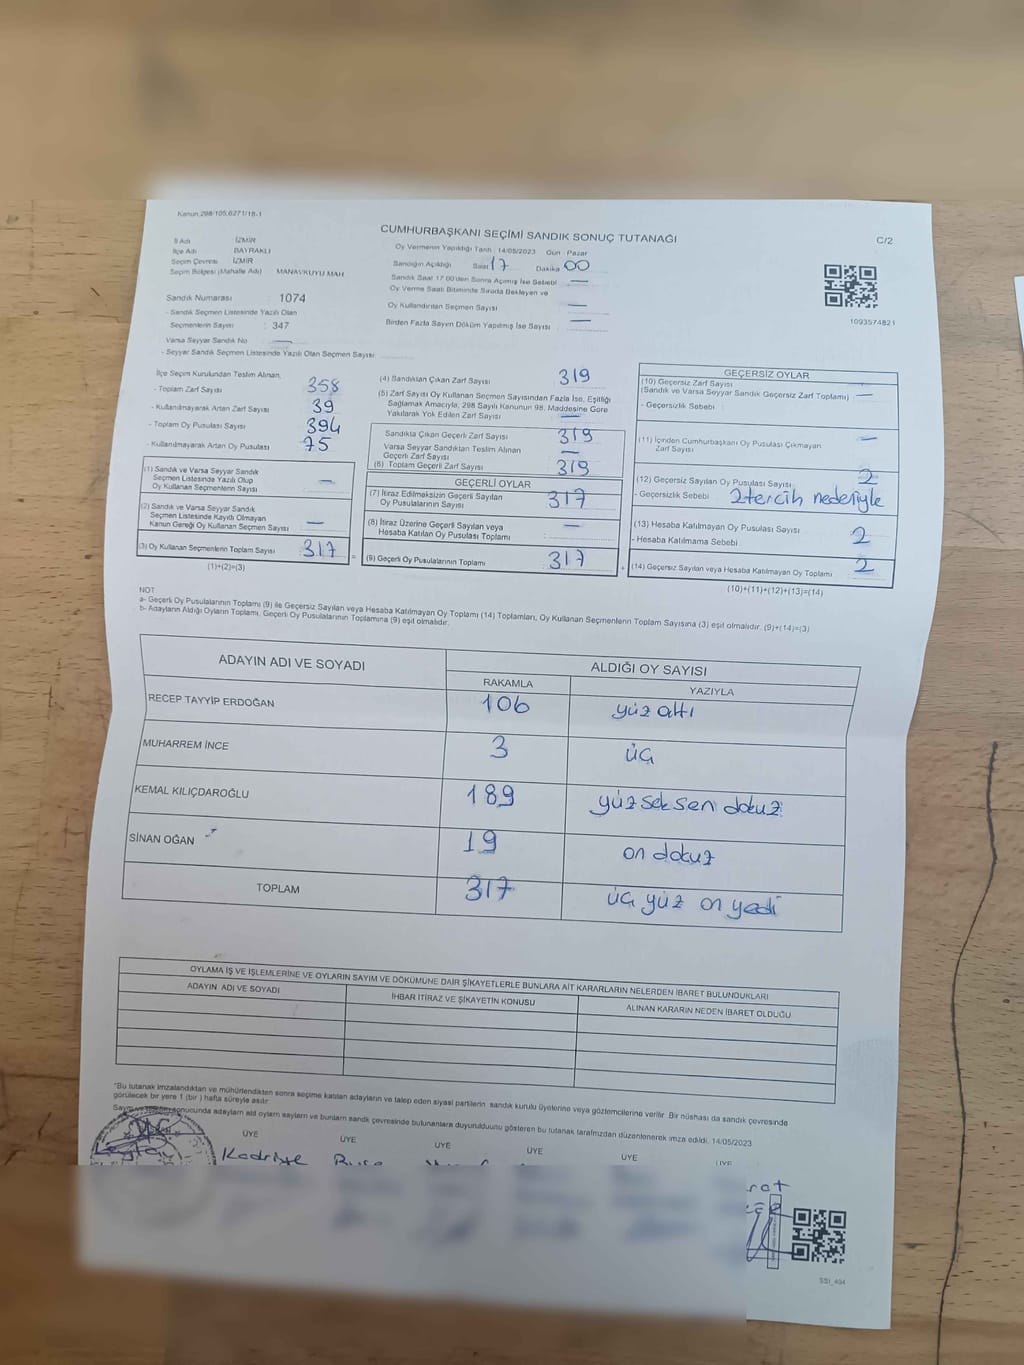 Kanun 298/105,6271/18-1
CUMHURBAŞKANI SEÇİMİ SANDIK SONUÇ TUTANAĞI
C/2
İl Adı İZMİR
İlçe Adı BAYRAKLI
Seçim Çevresi İZMİR
Seçim Bölgesi (Mahalle Adı) MANAVKUYU MAH
Oy Vermenin Yapıldığı Tarih : 14/05/2023 Gün : Pazar
Sandığın Açıldığı Saat 17 Dakika 00
Sandık Saat 17:00'den Sonra Açılmış İse Sebebi —
Oy Verme Saati Bitiminde Sırada Bekleyen ve
Oy Kullandırılan Seçmen Sayısı —
Birden Fazla Sayım Döküm Yapılmış İse Sayısı —
1093574821
Sandık Numarası : 1074
- Sandık Seçmen Listesinde Yazılı Olan
Seçmenlerin Sayısı : 347
Varsa Seyyar Sandık No —
- Seyyar Sandık Seçmen Listesinde Yazılı Olan Seçmen Sayısı
İlçe Seçim Kurulundan Teslim Alınan,
- Toplam Zarf Sayısı 358
- Kullanılmayarak Artan Zarf Sayısı 39
- Toplam Oy Pusulası Sayısı 394
- Kullanılmayarak Artan Oy Pusulası 75
(1) Sandık ve Varsa Seyyar Sandık
Seçmen Listesinde Yazılı Olup
Oy Kullanan Seçmenlerin Sayısı —
(2) Sandık ve Varsa Seyyar Sandık
Seçmen Listesinde Kayıtlı Olmayan
Kanun Gereği Oy Kullanan Seçmen Sayısı —
(3) Oy Kullanan Seçmenlerin Toplam Sayısı 317
(1)+(2)=(3)
(4) Sandıktan Çıkan Zarf Sayısı 319
(5) Zarf Sayısı Oy Kullanan Seçmen Sayısından Fazla İse, Eşitliği
Sağlamak Amacıyla, 298 Sayılı Kanunun 98. Maddesine Göre
Yakılarak Yok Edilen Zarf Sayısı —
Sandıkta Çıkan Geçerli Zarf Sayısı 319
Varsa Seyyar Sandıktan Teslim Alınan
Geçerli Zarf Sayısı —
(6) Toplam Geçerli Zarf Sayısı 319
GEÇERLİ OYLAR
(7) İtiraz Edilmeksizin Geçerli Sayılan
Oy Pusulalarının Sayısı 317
(8) İtiraz Üzerine Geçerli Sayılan veya
Hesaba Katılan Oy Pusulası Toplamı —
(9) Geçerli Oy Pusulalarının Toplamı 317
GEÇERSİZ OYLAR
(10) Geçersiz Zarf Sayısı
(Sandık ve Varsa Seyyar Sandık Geçersiz Zarf Toplamı) —
- Geçersizlik Sebebi
(11) İçinden Cumhurbaşkanı Oy Pusulası Çıkmayan
Zarf Sayısı —
(12) Geçersiz Sayılan Oy Pusulası Sayısı 2
- Geçersizlik Sebebi 2 tercih nedeniyle
(13) Hesaba Katılmayan Oy Pusulası Sayısı 2
- Hesaba Katılmama Sebebi
(14) Geçersiz Sayılan veya Hesaba Katılmayan Oy Toplamı 2
(10)+(11)+(12)+(13)=(14)
NOT
a- Geçerli Oy Pusulalarının Toplamı (9) ile Geçersiz Sayılan veya Hesaba Katılmayan Oy Toplamı (14) Toplamları, Oy Kullanan Seçmenlerin Toplam Sayısına (3) eşit olmalıdır. (9)+(14)=(3)
b- Adayların Aldığı Oyların Toplamı, Geçerli Oy Pusulalarının Toplamına (9) eşit olmalıdır.
ADAYIN ADI VE SOYADI ALDIĞI OY SAYISI
RAKAMLA YAZIYLA
RECEP TAYYİP ERDOĞAN 106 yüz altı
MUHARREM İNCE 3 üç
KEMAL KILIÇDAROĞLU 189 yüz seksen dokuz
SİNAN OĞAN 19 on dokuz
TOPLAM 317 üç yüz on yedi
OYLAMA İŞ VE İŞLEMLERİNE VE OYLARIN SAYIM VE DÖKÜMÜNE DAİR ŞİKAYETLERLE BUNLARA AİT KARARLARIN NELERDEN İBARET BULUNDUKLARI
ADAYIN ADI VE SOYADI İHBAR İTİRAZ VE ŞİKAYETİN KONUSU ALINAN KARARIN NEDEN İBARET OLDUĞU
*Bu tutanak imzalandıktan ve mühürlendikten sonra seçime katılan adayların ve talep eden siyasi partilerin sandık kurulu üyelerine veya gözlemcilerine verilir. Bir nüshası da sandık çevresinde
görülecek bir yere 1 (bir) hafta süreyle asılır.
sonucunda adayların ald oyların sayıların ve bunların sandık çevresinde bulunanlara duyurulduunu gösteren bu tutanak tarafımızdan düzenlenerek imza edildi. 14/05/2023
ÜYE ÜYE ÜYE ÜYE ÜYE ÜYE
Kadriye
SSI_494